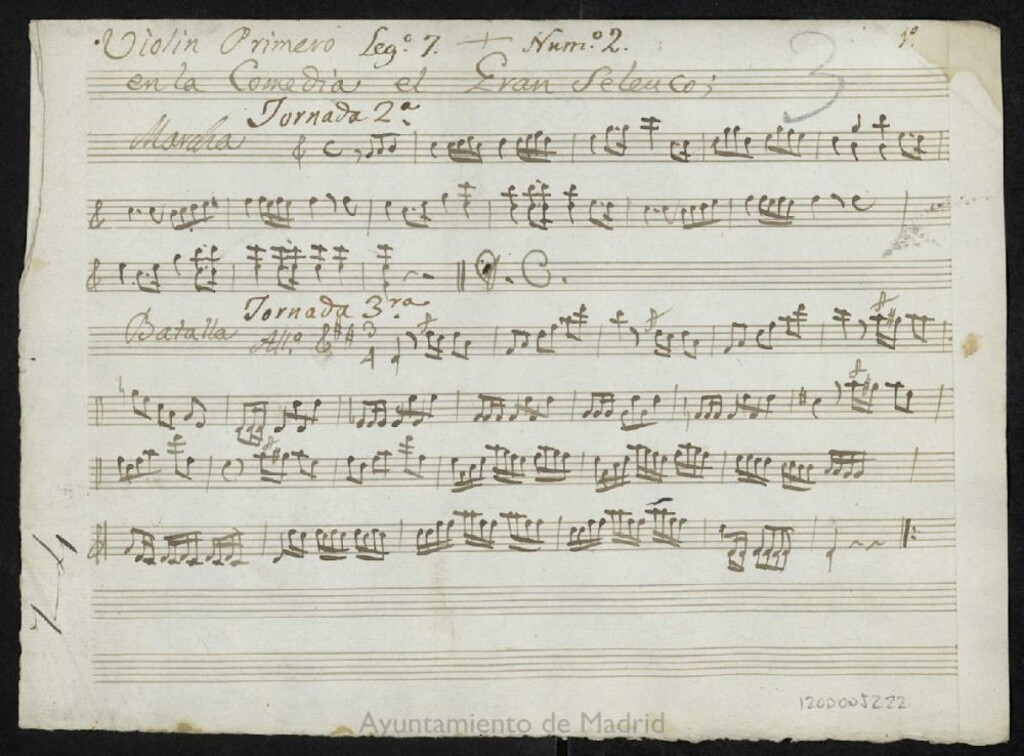 Violin Primero Leg.º 7. + Num.º 2. 1º
en la Comedia el Gran Seleuco;
3
Jornada 2.ª
Marcha
D. C.
Jornada 3.ra
Batalla All.º 3 4
1200005222
Ayuntamiento de Madrid